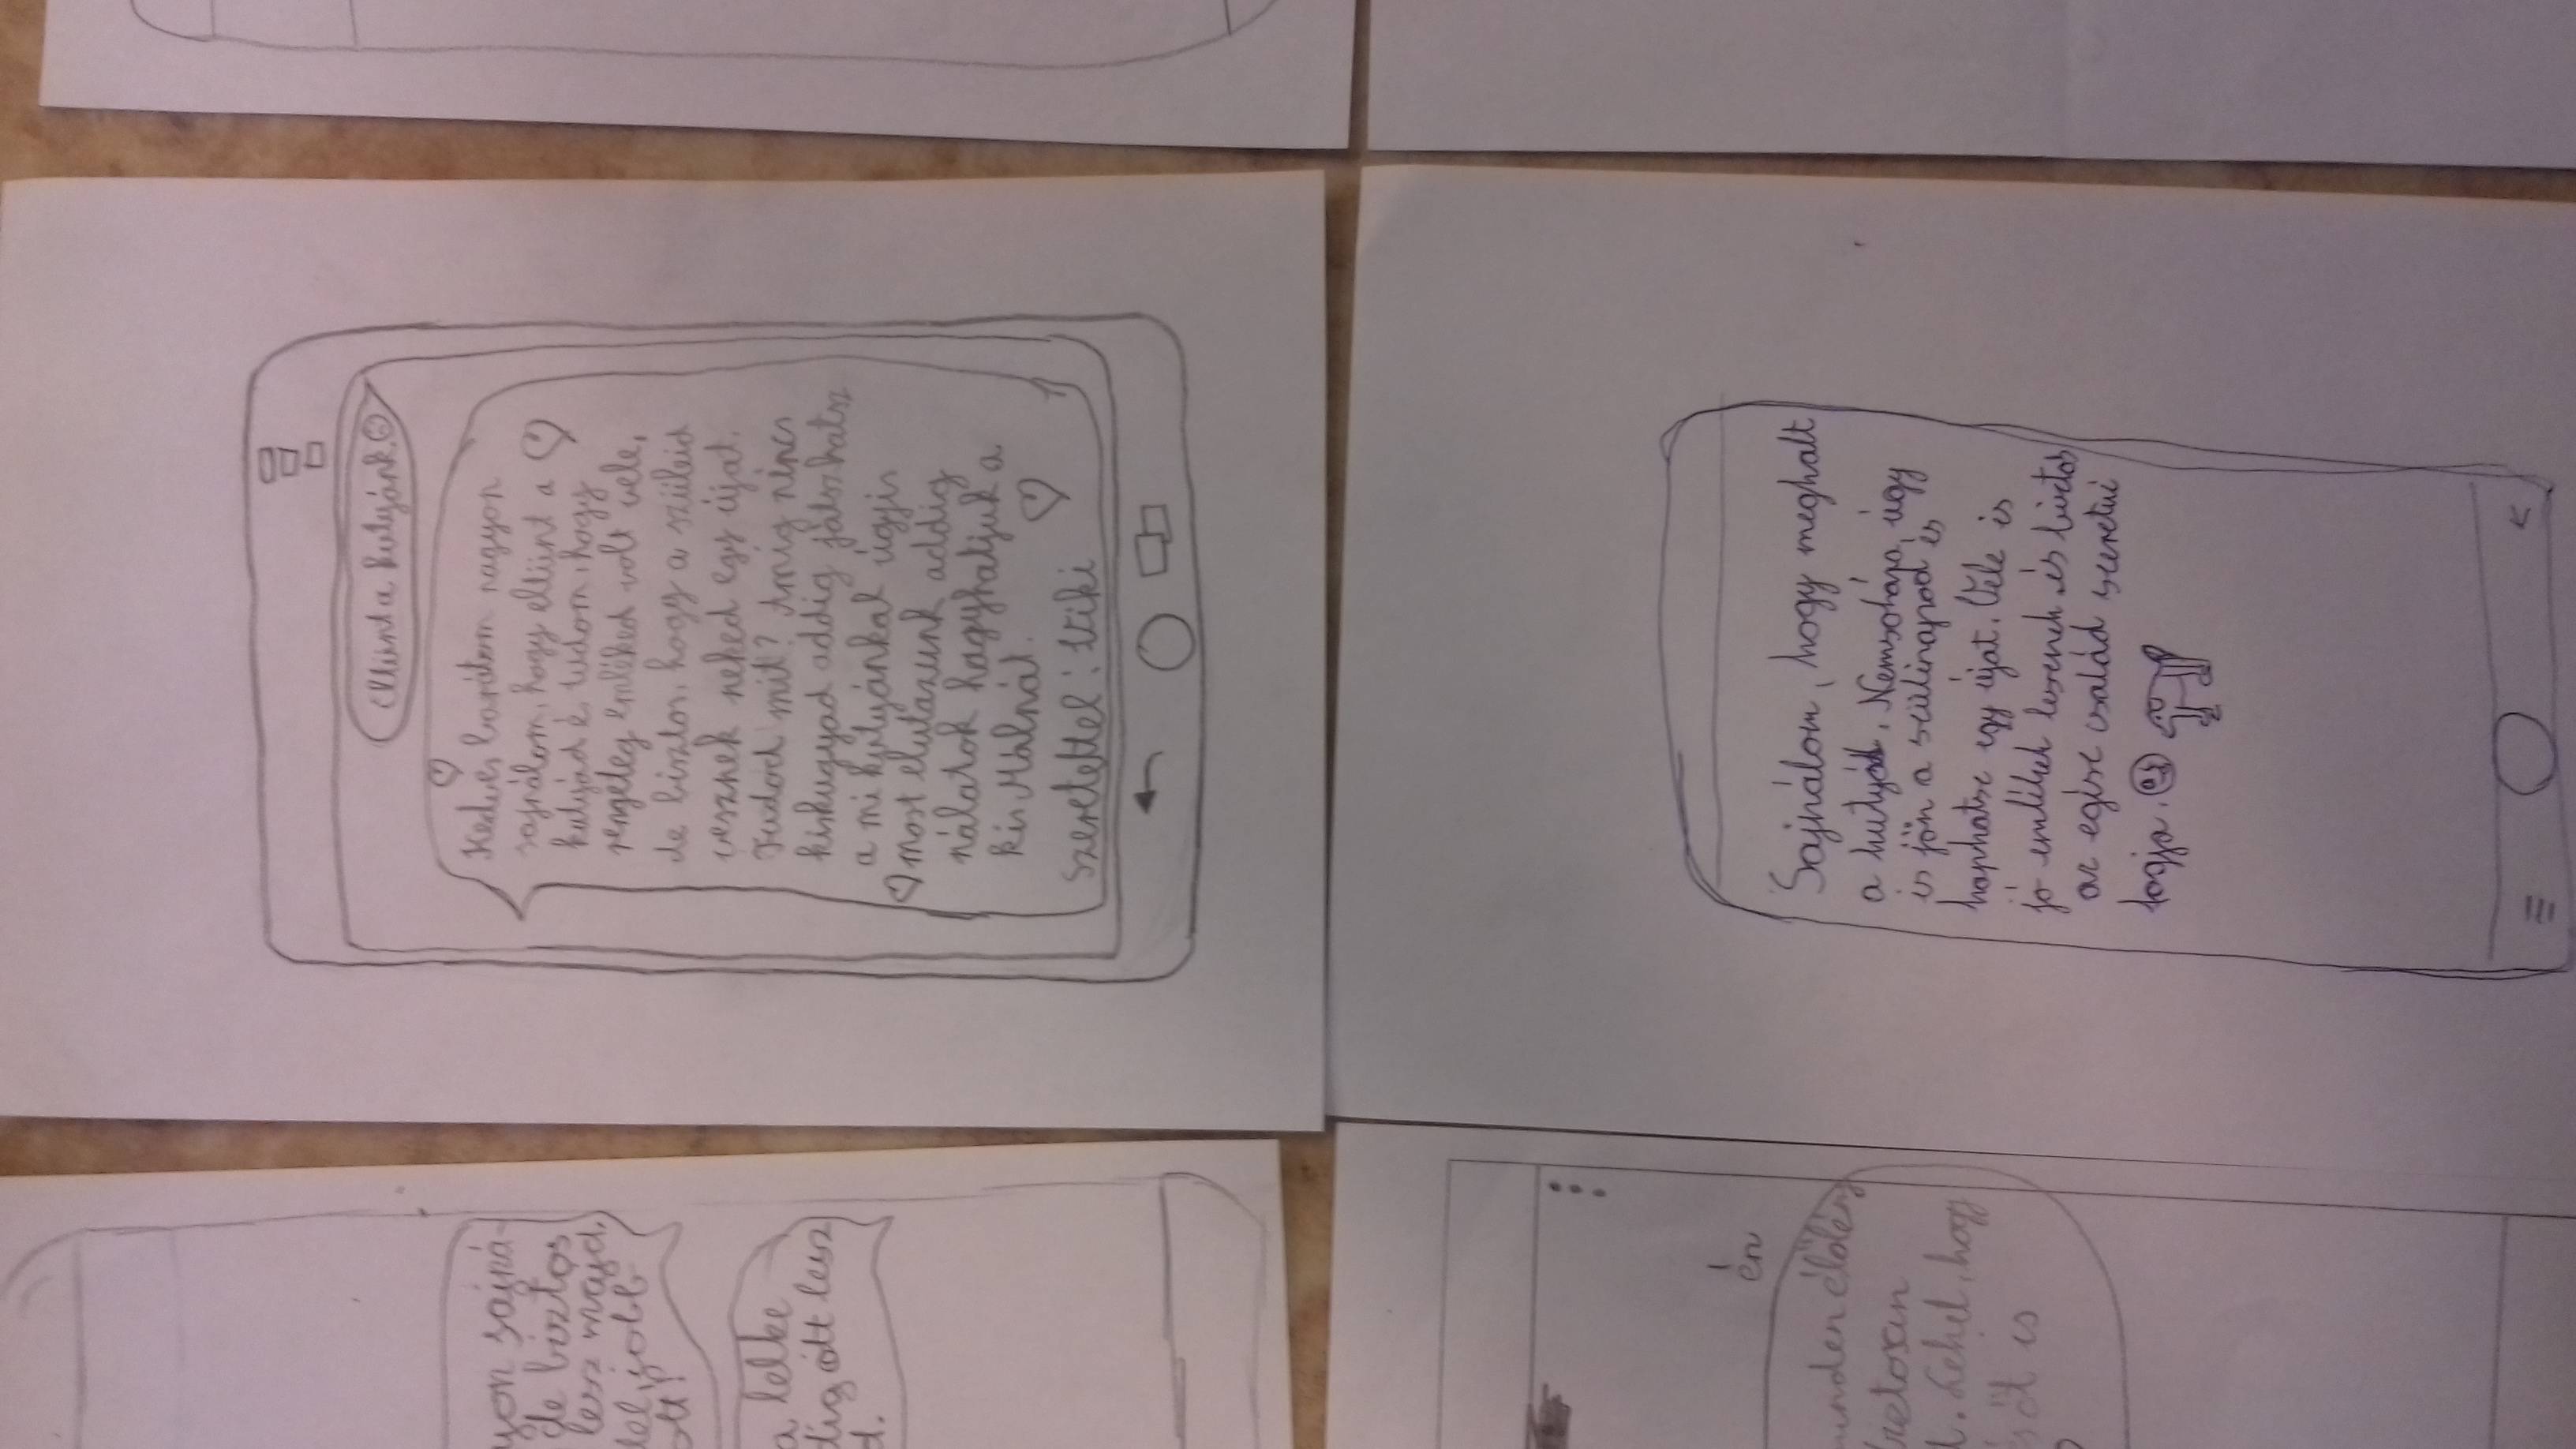 Eltünt a kutyánk.
Kedves barátom nagyon
sajnálom, hogy eltünt a
kutyád és tudom, hogy
rengeteg emléked volt vele,
de biztos, hogy a szüleid
vesznek neked egy újat.
Tudod mit? Amíg nincs
kiskutyad addig játszhatsz
a mi kutyánkal úgyis
most elutazunk addig
nálatok hagyhatjuk a
kis
Szeretettel: Viki
Sajnálom, hogy meghalt
a kutyád. Nemsokára úgy
is jön a szülinapod és
kaphatsz egy újat. Vele is
jó emlékek lesznek és biztos
az egész család szeretni
fogja.
yon sajná-
de biztos
lesz majd,
jobb
olt!
a lelke
dig ott lesz
d.
én
minden élőlény
. Lehet, hogy
is